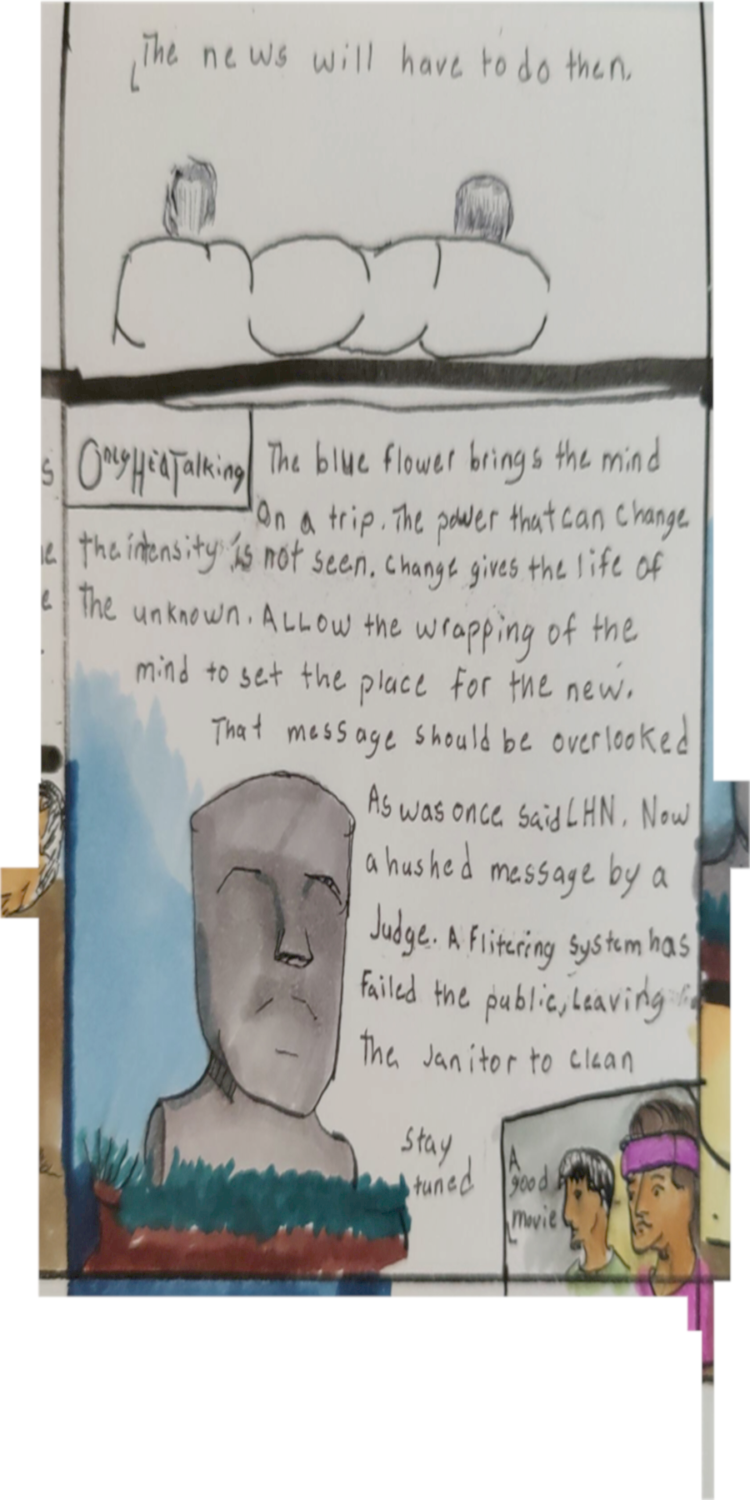 The news will have to do then.
Only Hed Talking
The blue flower brings the mind
On a trip. The power that can change
the intensity is not seen. Change gives the life of
The unknown. ALLOW the wrapping of the
mind to set the place for the new.
That message should be overlooked
As was once said LHN. Now
a hushed message by a
Judge. A Flitering system has
Failed the public, Leaving
The Janitor to clean
Stay
tuned
A
good
movie